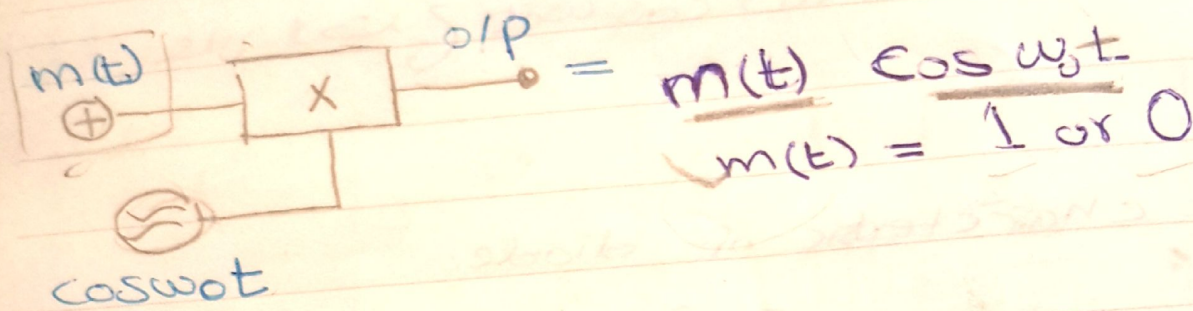 m(t)
+
X
o/p = m(t) cos ω₀t
m(t) = 1 or 0
cosωot